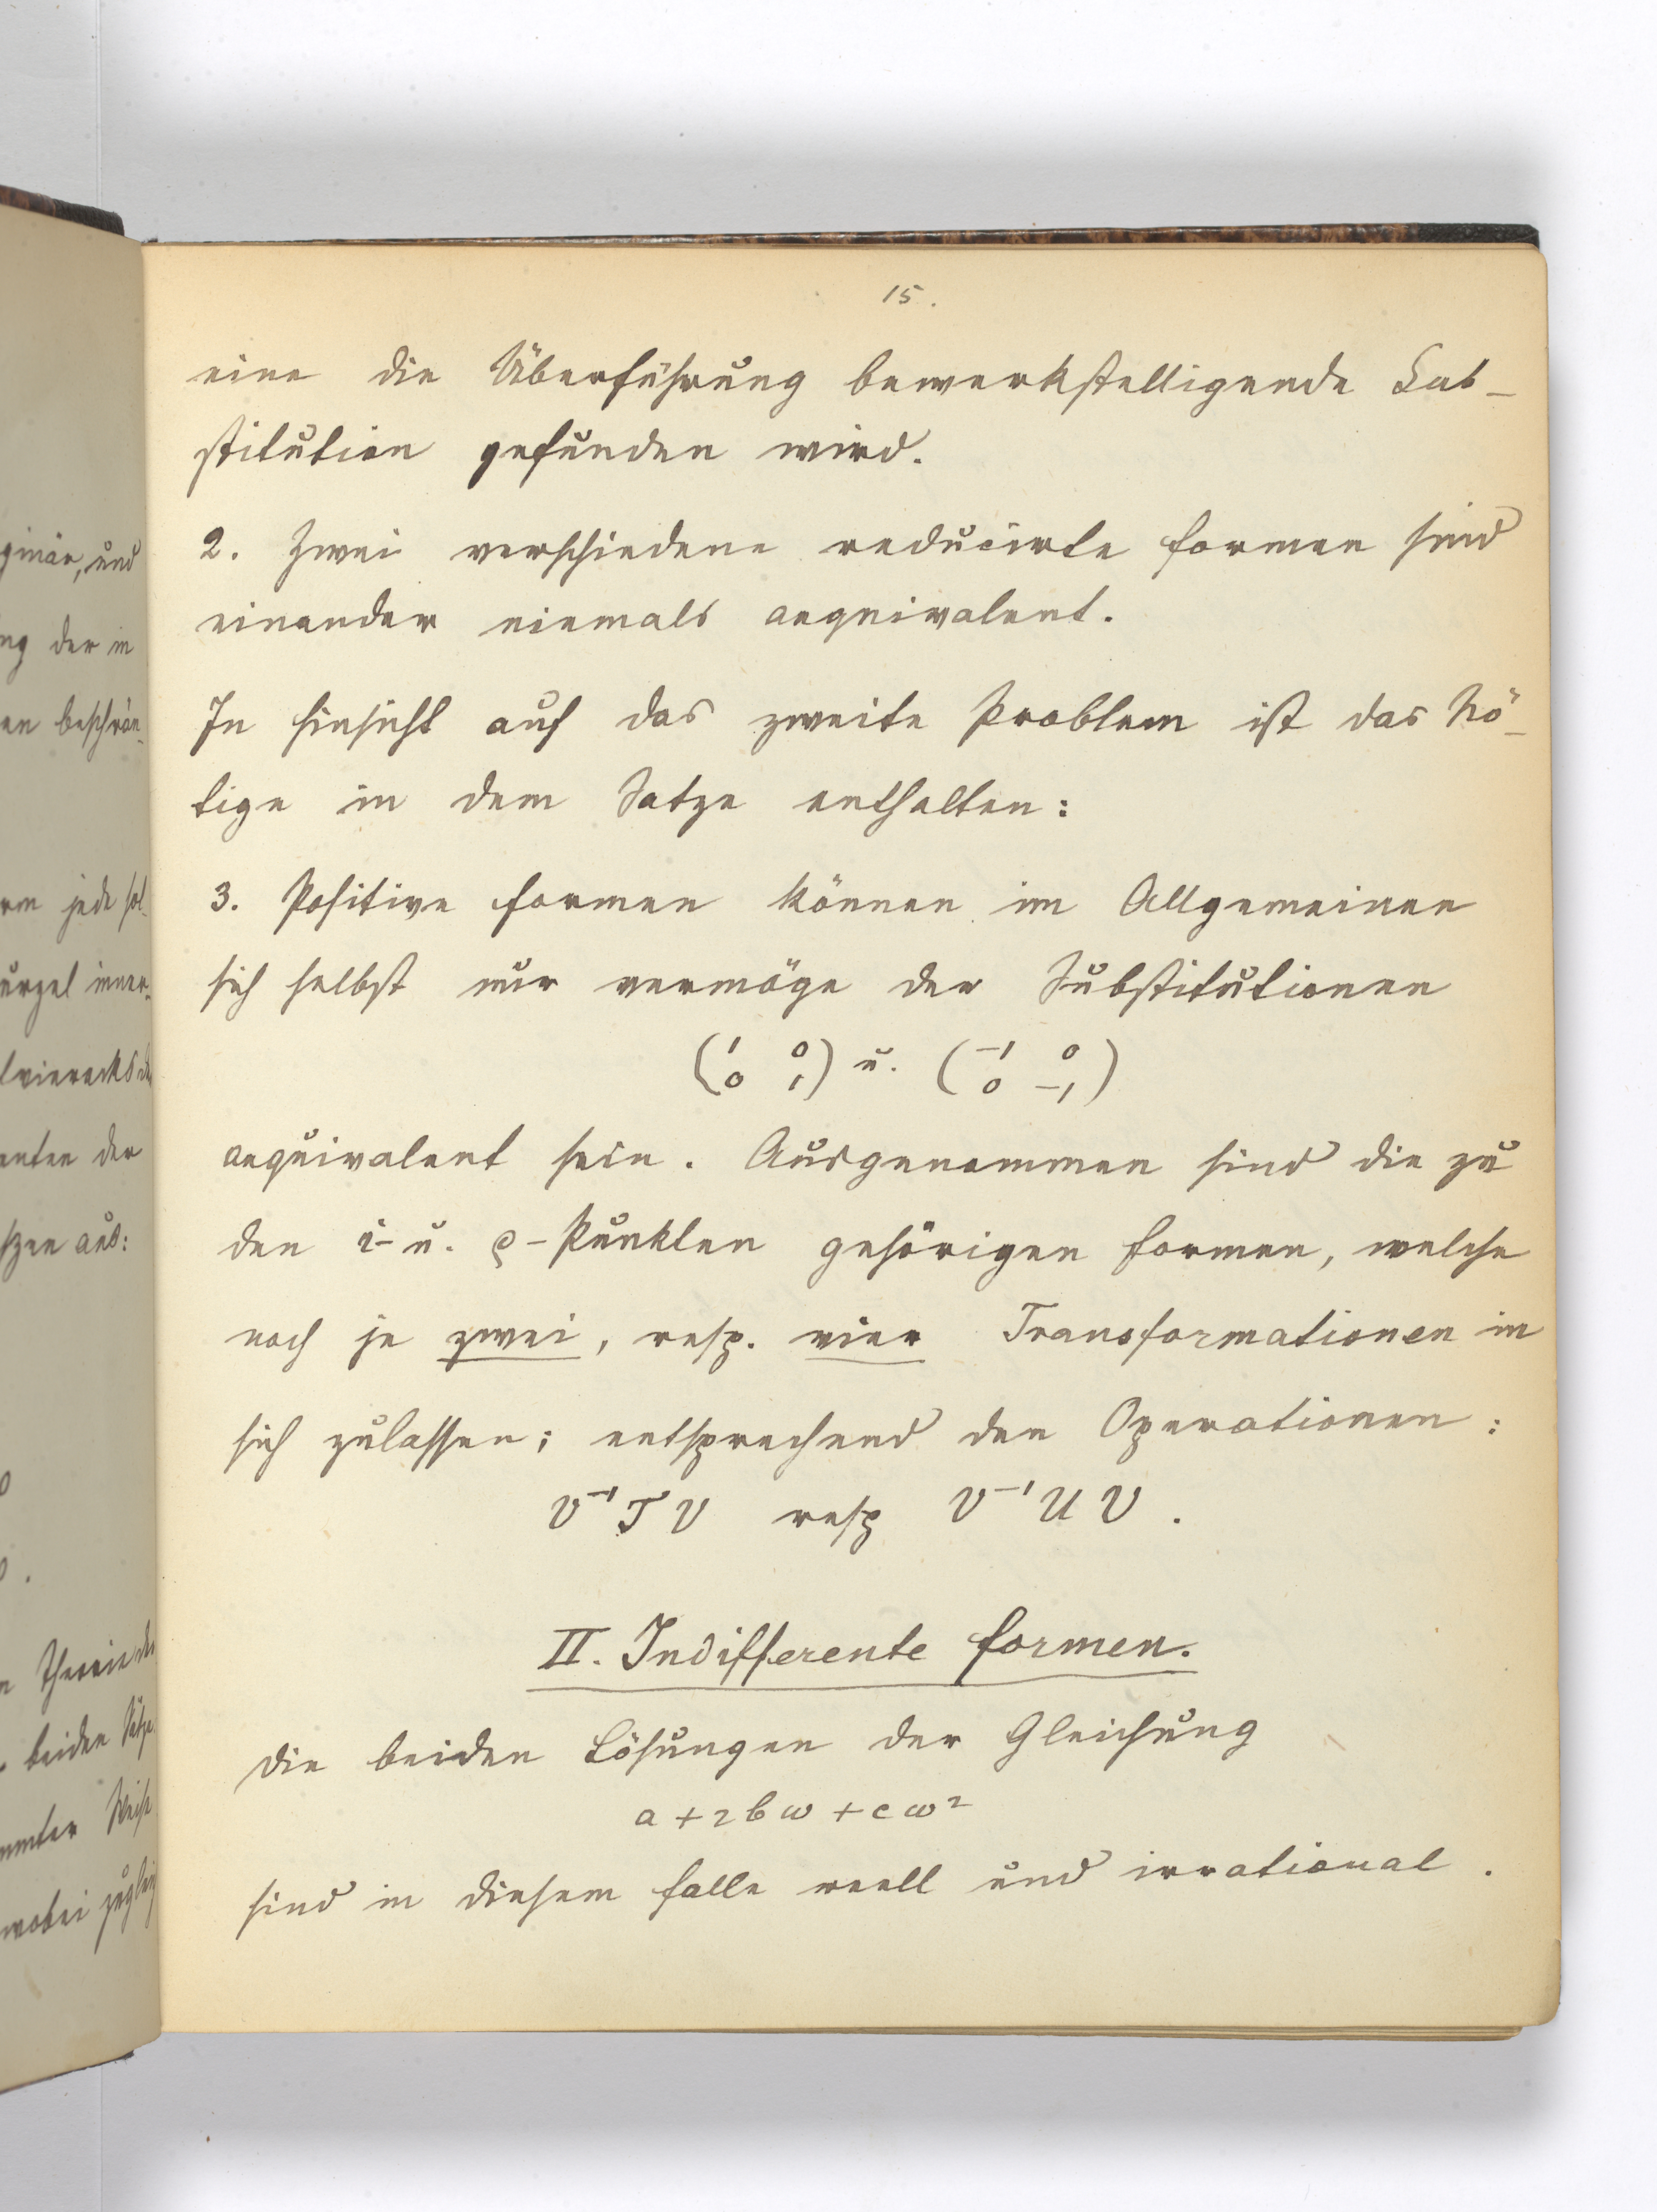 15.
eine die Überführung bewerkstelligende Sub-
stitution gefunden wird.
2. Zwei verschiedene reducirte Formen sind
einander niemals aequivalent.
In Hinsicht auf das zweite Problem ist das Nö-
tige in dem Satze enthalten:
3. Positive Formen können im Allgemeinen
sich selbst nur vermöge der Substitutionen
(1 0 0 1) u. (-1 0 0 -1)
aequivalent sein. Ausgenommen sind die zu
den i- u. ρ-Punkten gehörigen Formen, welche
noch je zwei, resp. vier Transformationen in
sich zulassen; entsprechend den Operationen:
V⁻¹TV resp V⁻¹UV.
II. Indifferente Formen.
Die beiden Lösungen der Gleichung
a + 2bω + cω²
sind in diesem Falle reell und irrational.
ginär, und
ng der in
en beschrän-
rm jede sol-
urzel inner-
vierecks
enten der
tzen aus:
Theorie der
beiden Sätze
mmter Weise
wobei zugleich